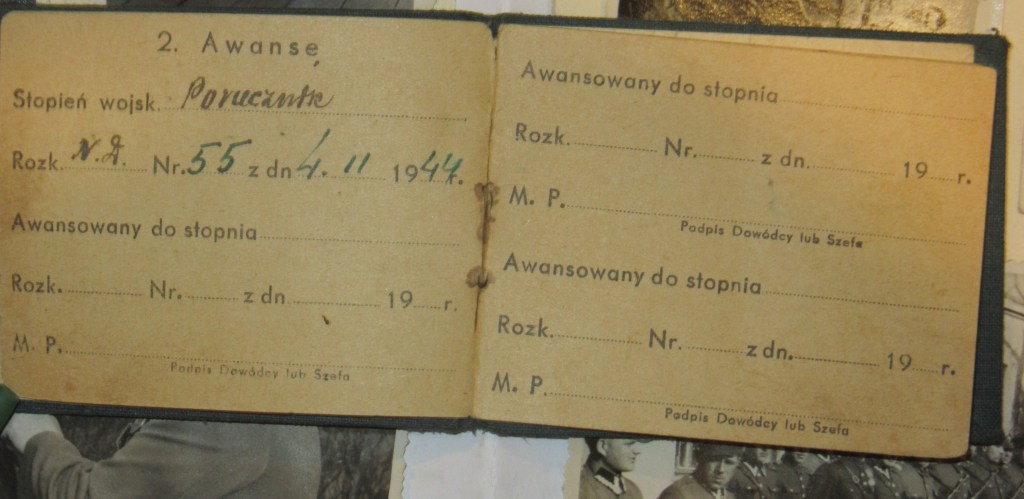 2. Awansę
Stopień wojsk. Porucznik
Rozk. N.D. Nr. 55 z dn 4. 11 1944 r.
Awansowany do stopnia
Rozk. Nr. z dn. 19 r.
M. P.
Podpis Dowódcy lub Szefa
Awansowany do stopnia
Rozk. Nr. z dn. 19 r.
M. P.
Podpis Dowódcy lub Szefa
Awansowany do stopnia
Rozk. Nr. z dn. 19 r.
M. P.
Podpis Dowódcy lub Szefa